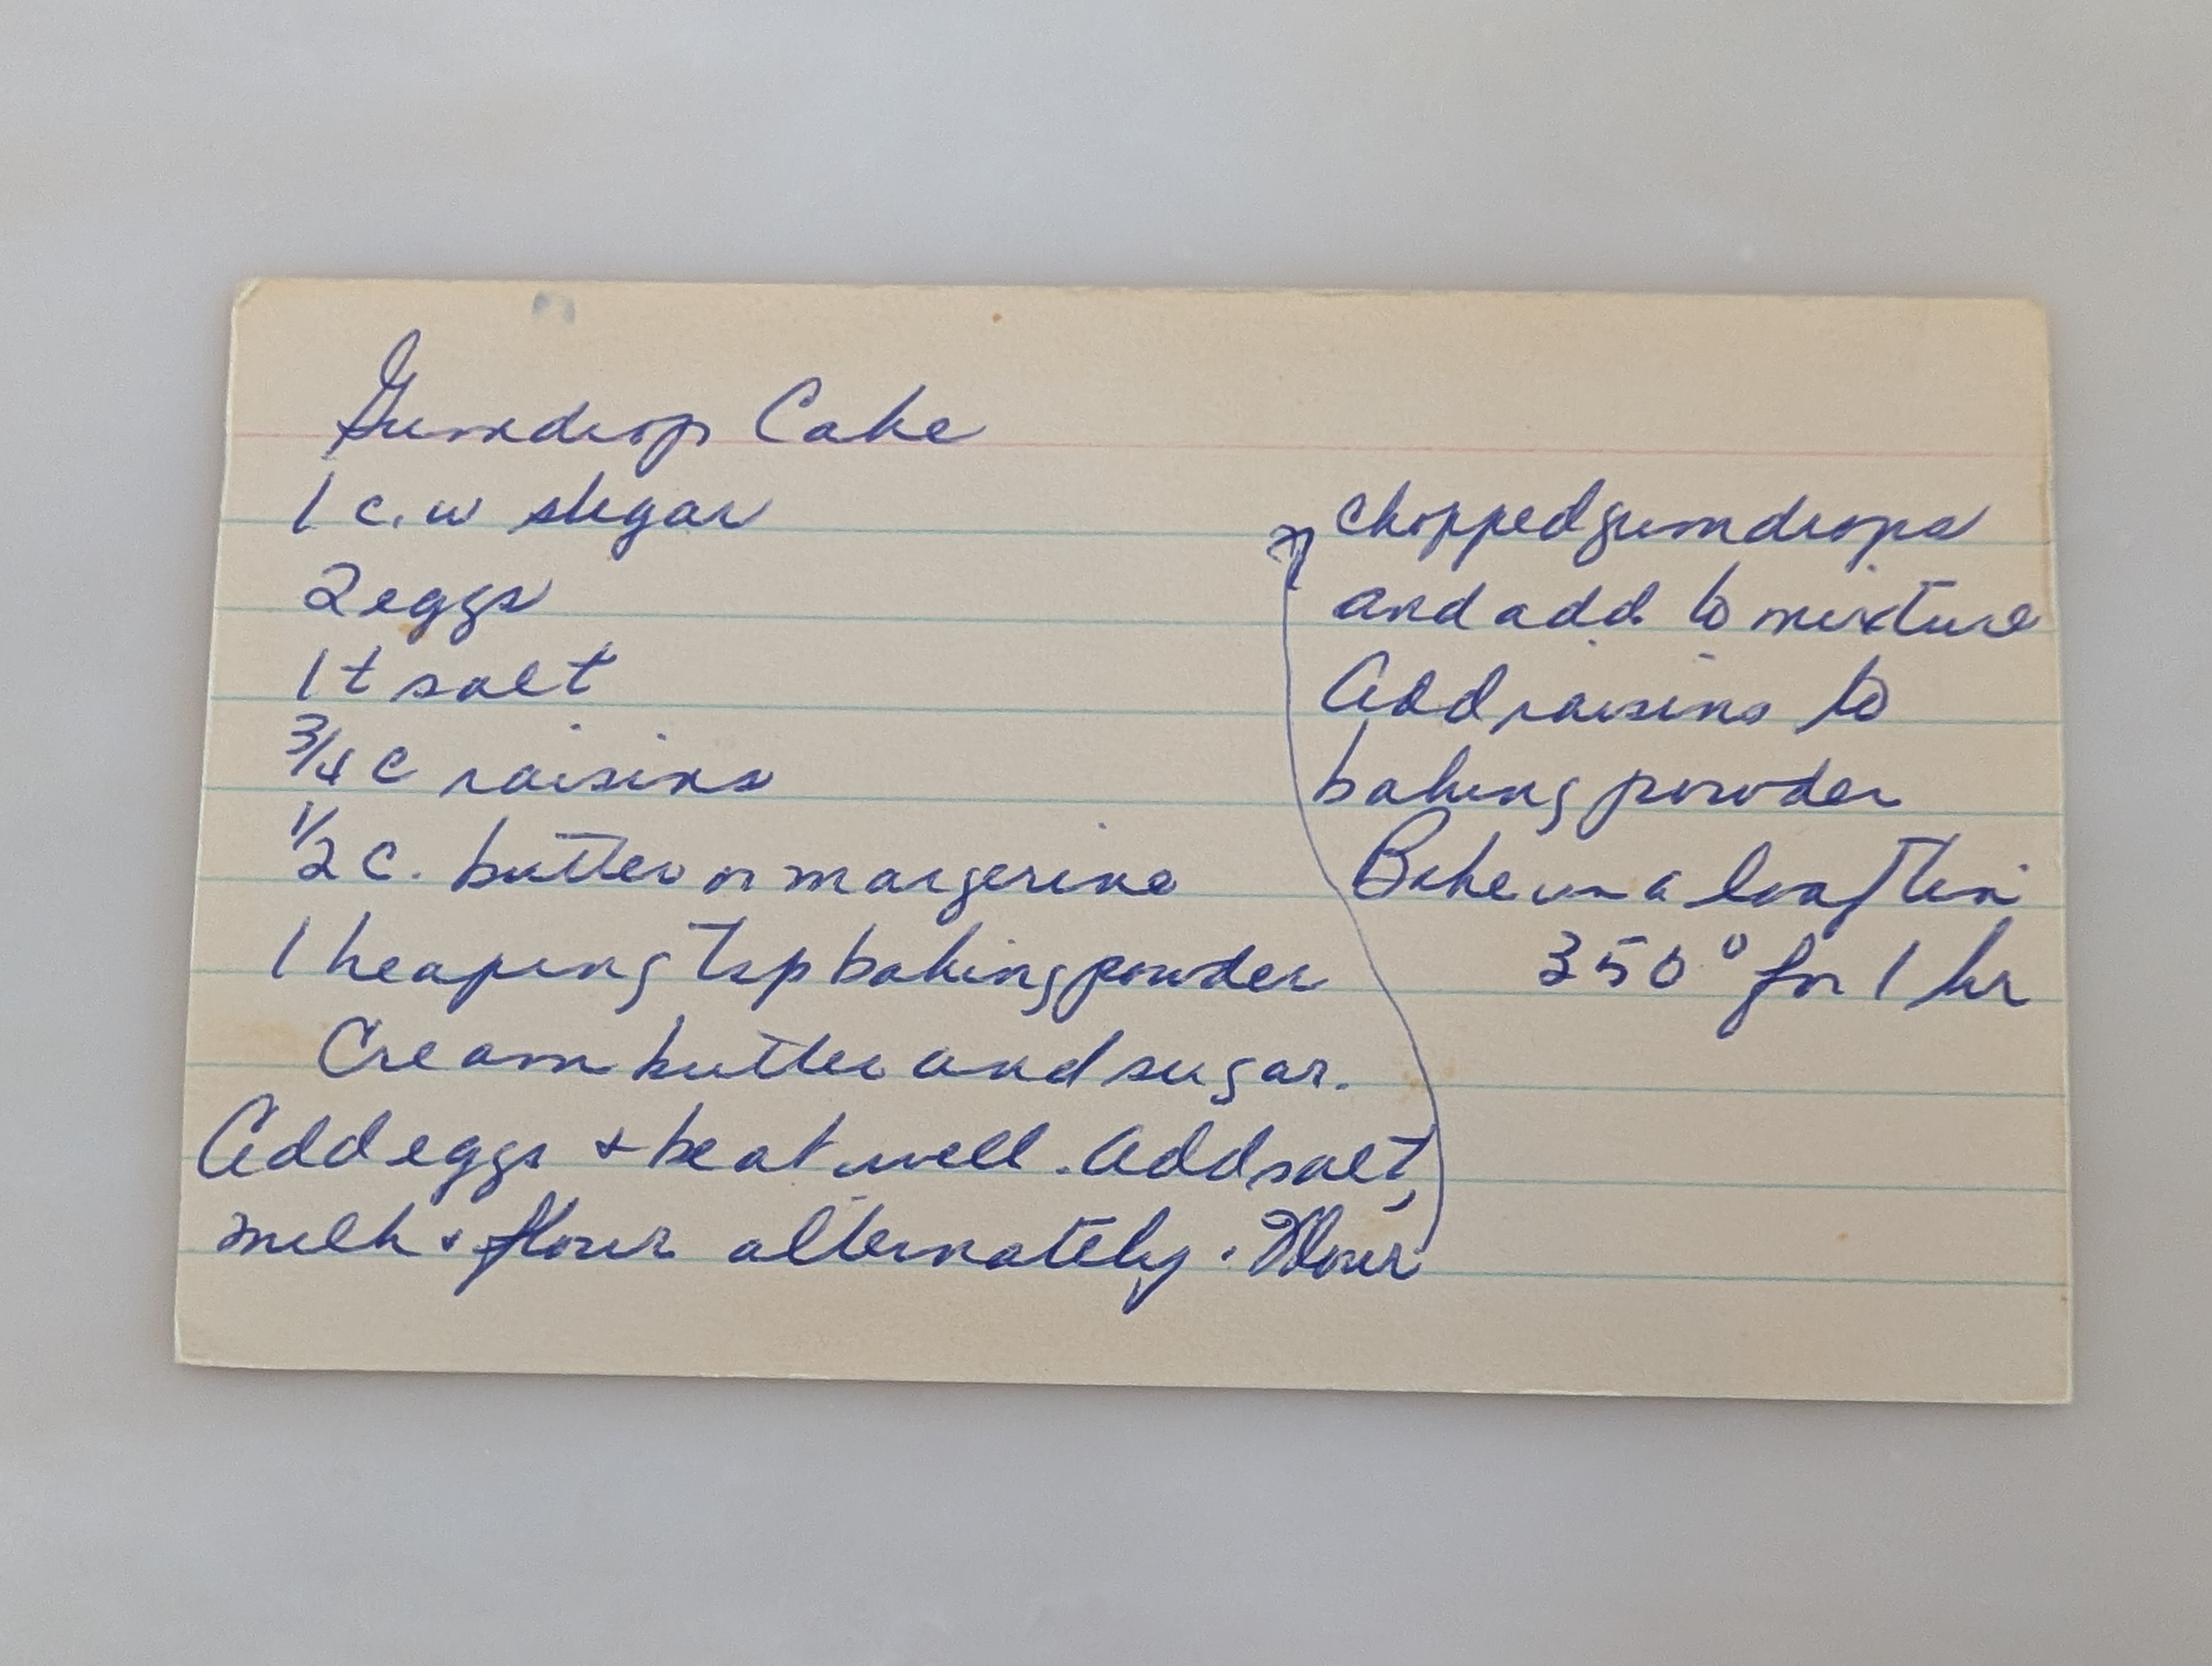 Gumdrop Cake
1 c. w sugar
2 eggs
1 t salt
3/4 c raisins
1/2 c. butter or margerine
1 heaping Tsp baking powder
Cream butter and sugar.
Add eggs + beat well. Add salt,
milk + flour alternately. Flour
chopped gumdrops
and add to mixture
Add raisins to
baking powder
Bake in a loaf tin
350° for 1 hr